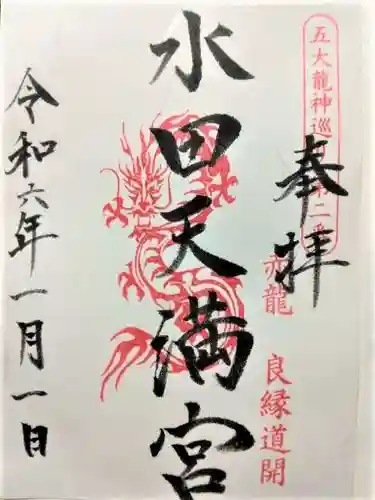 五大龍神巡り第二番
奉拝
赤龍
良縁道開
水田天満宮
令和六年一月一日